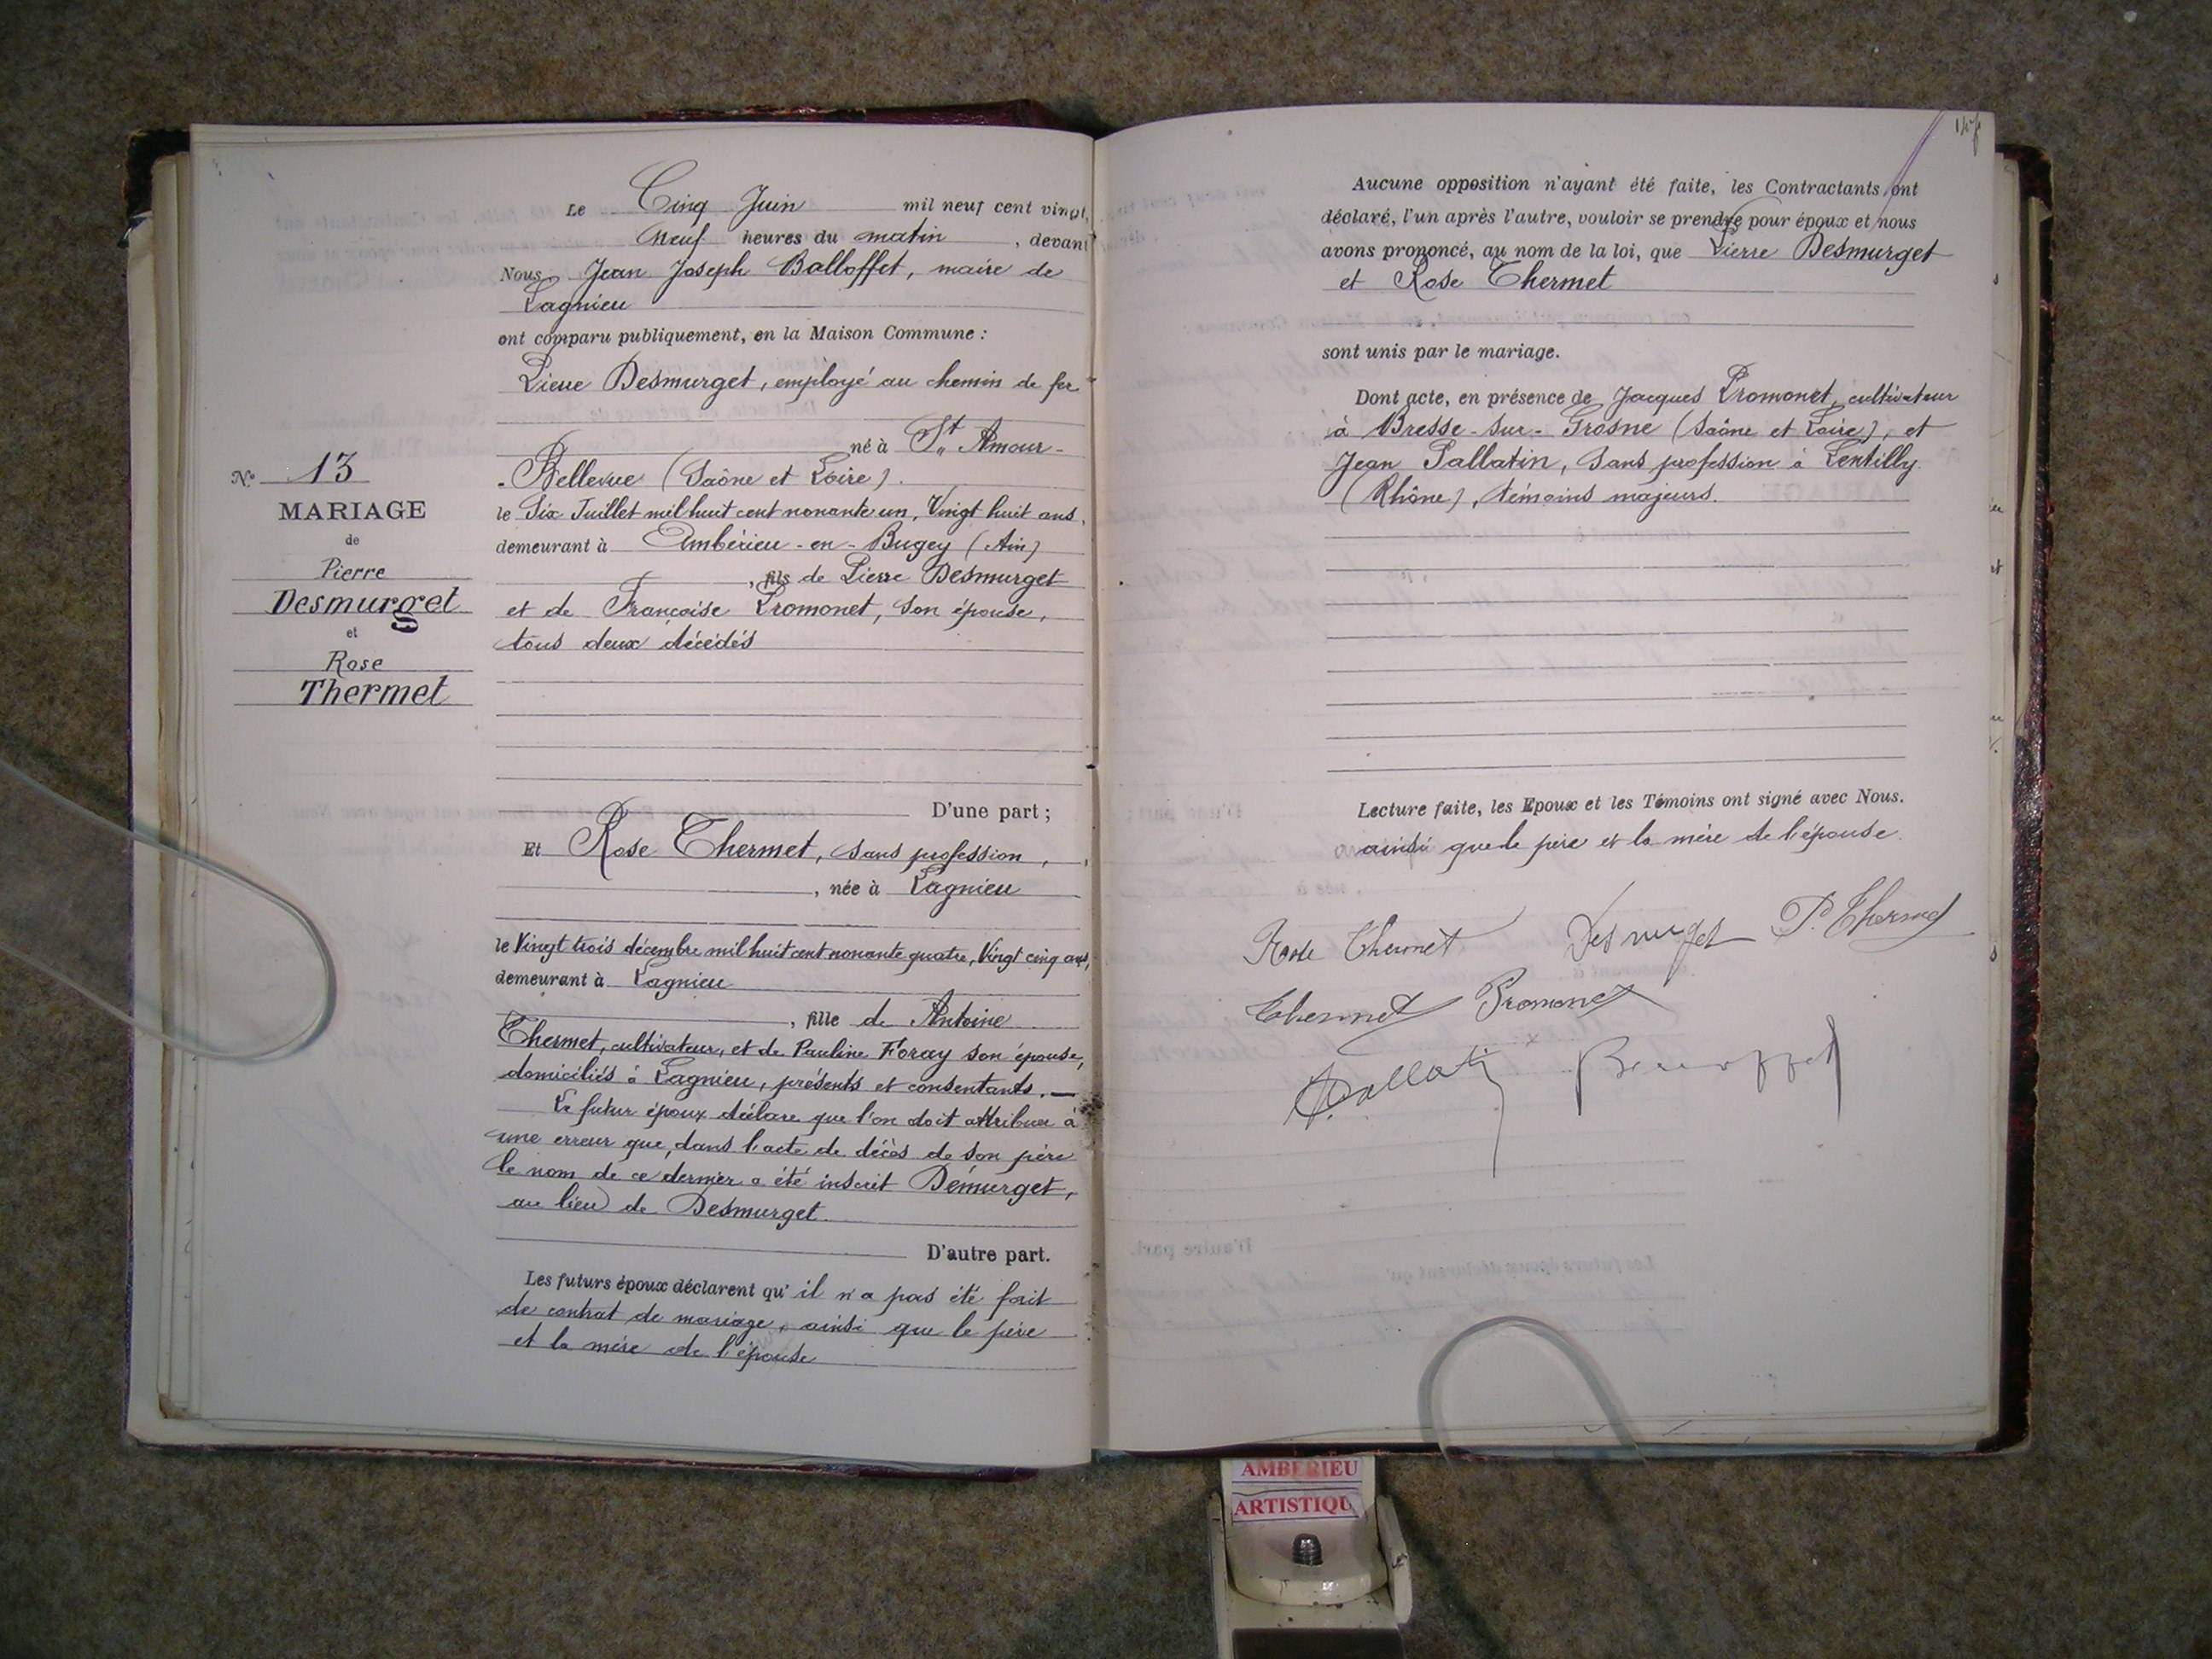 Le Cinq Juin mil neuf cent vingt,
Neuf heures du matin, devant
Nous Jean Joseph Balloffet, maire de
Lagnieu
ont comparu publiquement, en la Maison Commune :
Pierre Desmurget, employé au chemin de fer
né à St Amour-
-Bellevue (Saône et Loire).
le Six Juillet mil huit cent nonante un, Vingt huit ans,
demeurant à Ambérieu-en-Bugey (Ain)
, fils de Pierre Desmurget
et de Françoise Promonet, son épouse,
tous deux décédés
D'une part ;
Nº 13
MARIAGE
de
Pierre
Desmurget
et
Rose
Thermet
Et Rose Thermet, sans profession,
, née à Lagnieu
le Vingt trois décembre mil huit cent nonante quatre, Vingt cinq ans,
demeurant à Lagnieu
, fille de Antoine
Thermet, cultivateur, et de Pauline Foray son épouse,
domiciliés à Lagnieu, présents et consentants.
Le futur époux déclare que l'on doit attribuer à
une erreur que, dans l'acte de décès de son père
le nom de ce dernier a été inscrit Démurget,
au lieu de Desmurget.
D'autre part.
Les futurs époux déclarent qu'il n'a pas été fait
de contrat de mariage, ainsi que le père
et la mère de l'épouse
Aucune opposition n'ayant été faite, les Contractants ont
déclaré, l'un après l'autre, vouloir se prendre pour époux et nous
avons prononcé, au nom de la loi, que Pierre Desmurget
et Rose Thermet
sont unis par le mariage.
Dont acte, en présence de Jacques Promonet, cultivateur
à Bresse-sur-Grosne (Saône et Loire), et
Jean Pallatin, sans profession à Lentilly
(Rhône), témoins majeurs.
Lecture faite, les Epoux et les Témoins ont signé avec Nous.
ainsi que le père et la mère de l'épouse.
Rose Thermet Desmurget P. Thermet
Thermet Promonet
Pallatin Balloffet
AMBERIEU
ARTISTIQU